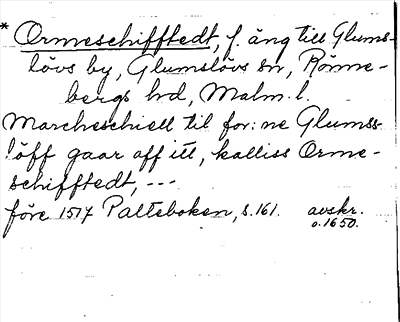 * Ormeschifftedt, f. äng till Glums-
lövs by, Glumslövs sn, Rönne-
bergs hd, Malm. l.
Marcheschiell til for: ne Glumss-
löff gaar aff itt, kalliss Orme-
schifftedt, ---
före 1517 Palteboken, s. 161. avskr.
o. 1650.